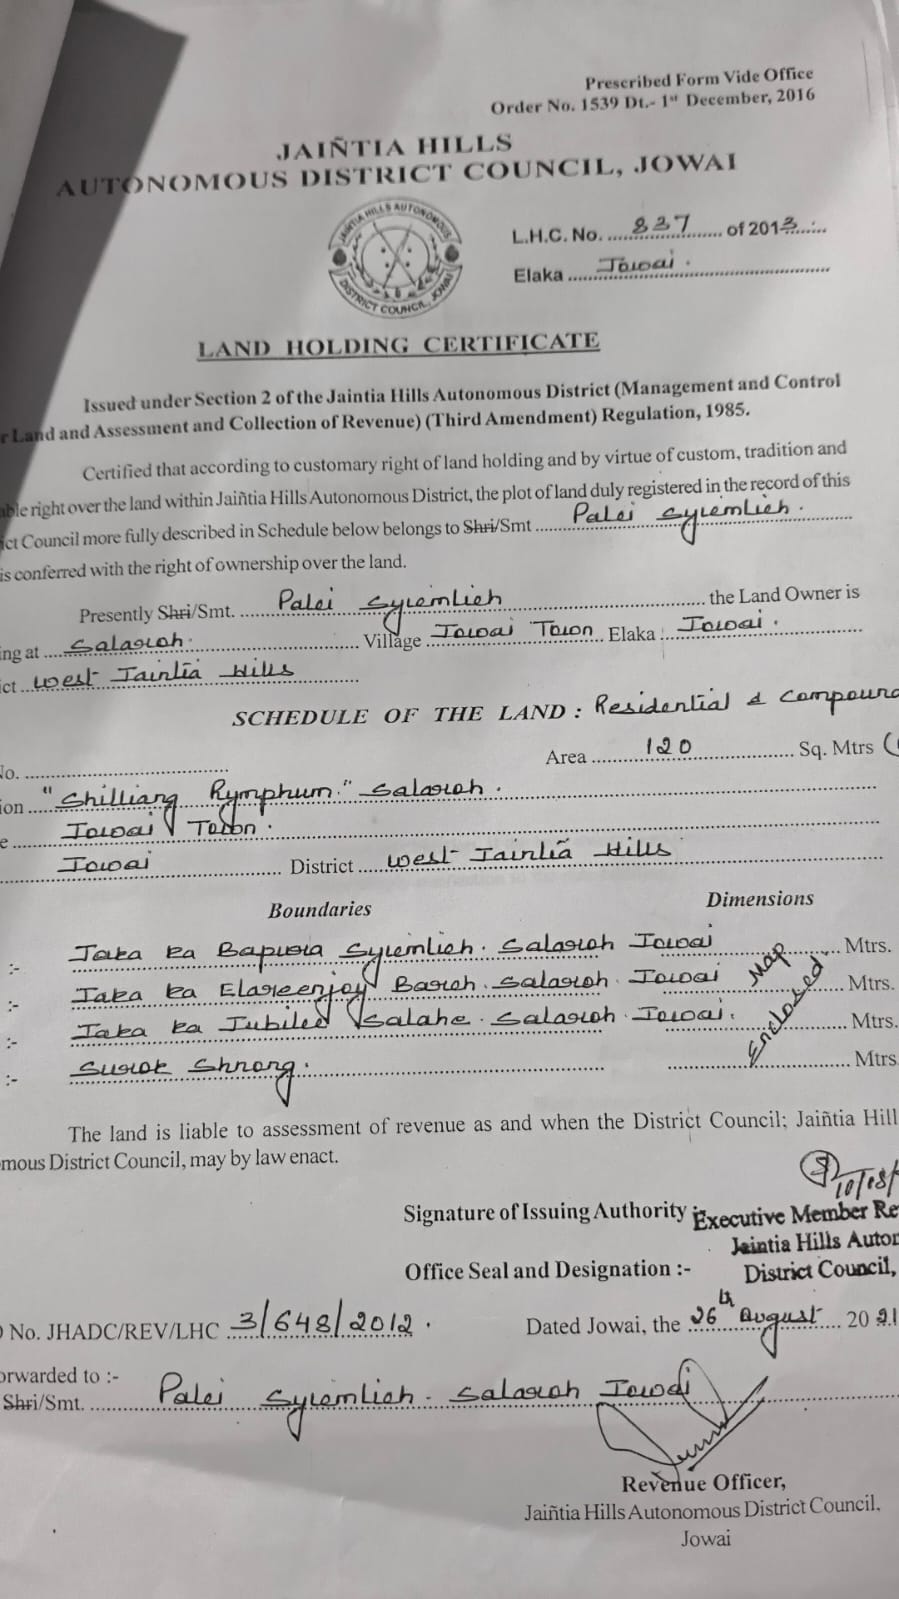 Prescribed Form Vide Office
Order No. 1539 Dt.- 1st December, 2016
JAIÑTIA HILLS
AUTONOMOUS DISTRICT COUNCIL, JOWAI
JAIÑTIA HILLS AUTONOMOUS
DISTRICT COUNCIL, JOWAI
L.H.C. No. 837 of 2013
Elaka Jowai.
LAND HOLDING CERTIFICATE
Issued under Section 2 of the Jaintia Hills Autonomous District (Management and Control
r Land and Assessment and Collection of Revenue) (Third Amendment) Regulation, 1985.
Certified that according to customary right of land holding and by virtue of custom, tradition and
able right over the land within Jaiñtia Hills Autonomous District, the plot of land duly registered in the record of this
ict Council more fully described in Schedule below belongs to Shri/Smt Palei Syiemlieh.
is conferred with the right of ownership over the land.
Presently Shri/Smt. Palei Syiemlieh the Land Owner is
ing at Salaroh. Village Jowai Town Elaka : Jowai.
ict West Jaintia Hills
SCHEDULE OF THE LAND : Residential & Compoun
No.
Area 120 Sq. Mtrs (
ion "Shilliang Rymphum" Salaroh.
e Jowai Town.
Jowai District West Jaintia Hills
Boundaries Dimensions
:- Jaka ka Syiemlieh. Salaroh Jowai Mtrs.
:- Jaka ka Bareh. Salaroh. Jowai Mtrs.
:- Jaka ka Jubilee Salahe. Salaroh. Jowai. Mtrs.
:- Surok Shnong. Mtrs
Map
Enclosed
The land is liable to assessment of revenue as and when the District Council; Jaiñtia Hill
omous District Council, may by law enact.
Signature of Issuing Authority :-
Executive Member Re
Jaintia Hills Autor
Office Seal and Designation :- District Council,
O No. JHADC/REV/LHC 3/648/2012. Dated Jowai, the 26th August 2021
orwarded to :-
Shri/Smt. Palei Syiemlieh. Salaroh Jowai
Revenue Officer,
Jaiñtia Hills Autonomous District Council,
Jowai